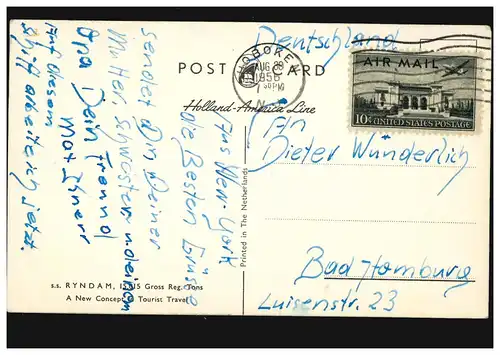 Deutschland
POST CARD
HOBOKEN
AUG 29
1956
AIR MAIL
10¢ UNITED STATES POSTAGE
Holland-America Line
An
Dieter Wünderlich
Bad Homburg
Luisenstr. 23
Aus New-York
die Besten Grüsse
sendet Dir Deiner
Mutter, Schwestern
Dein Freund
Auf diesem
Schiff arbeite ich jetzt.
Printed in The Netherlands
s.s. RYNDAM, Gross Reg. Tons
A New Concept Tourist Travel